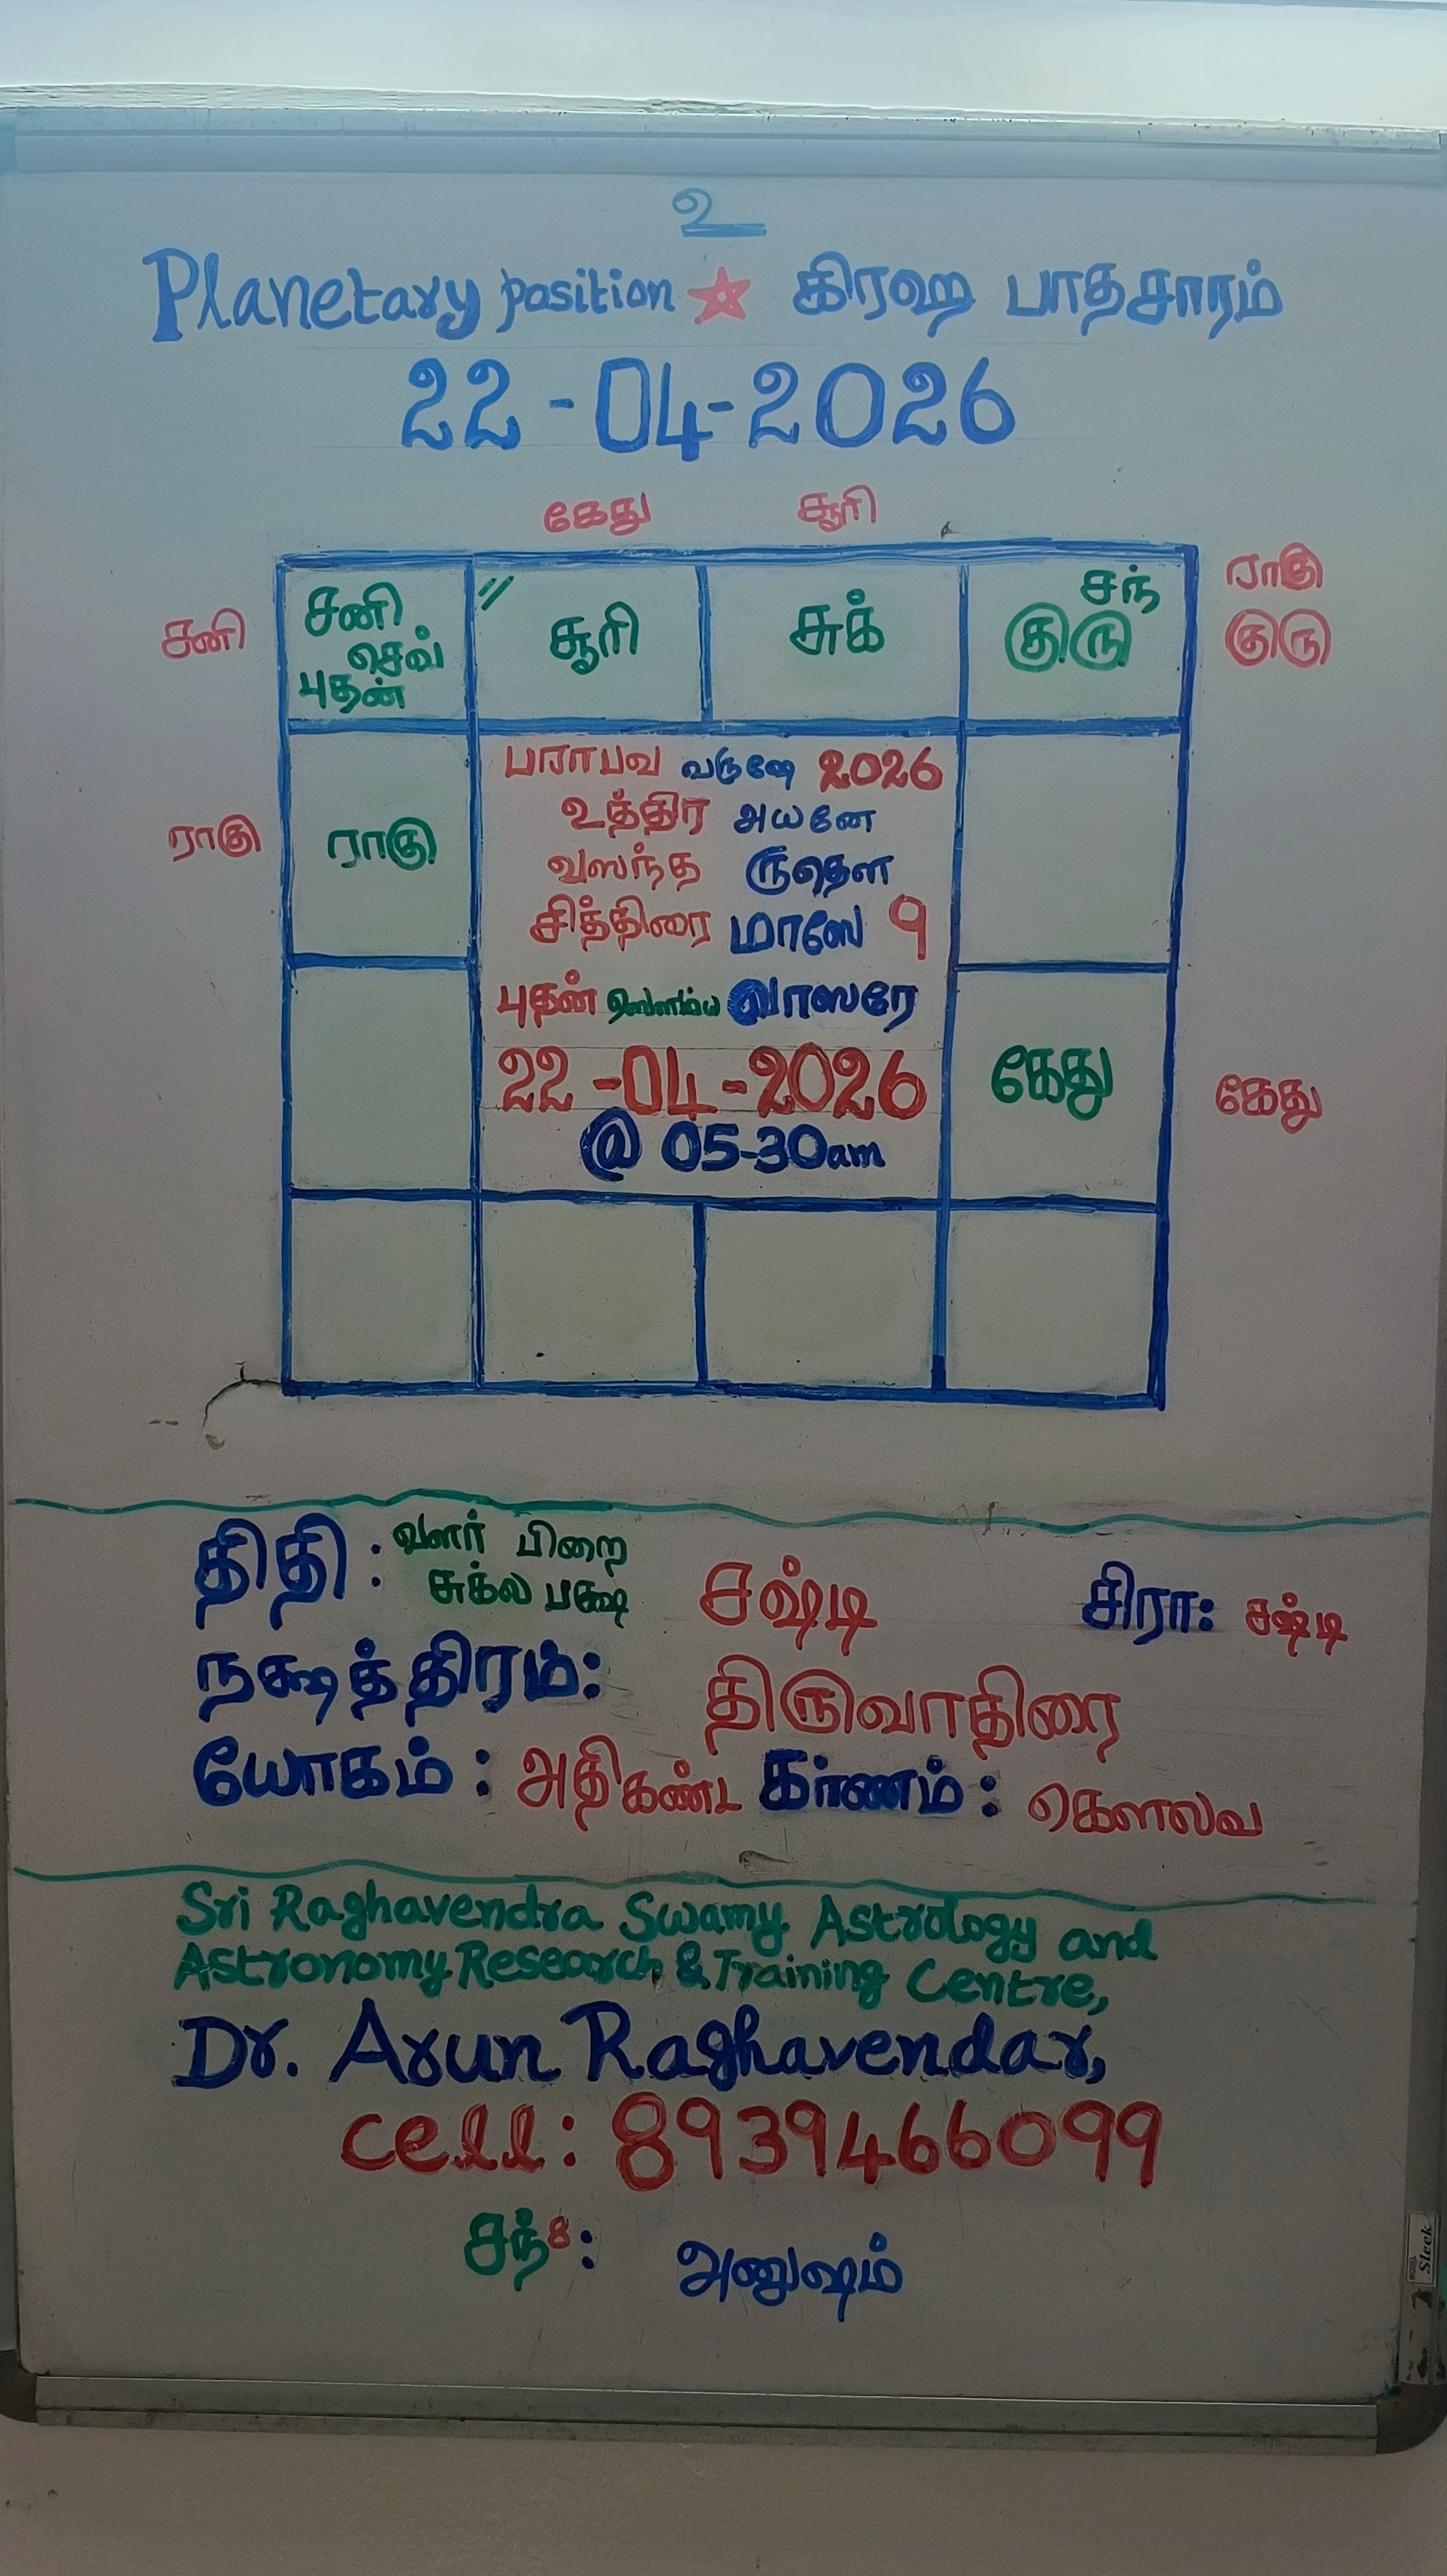 உ
Planetary position ☆ கிரஹ பாதசாரம்
22-04-2026
கேது சூரி
ராகு
சனி சனி செவ் புதன் // சூரி சுக் சந் குரு குரு
பராபவ வருஷே 2026
உத்திர அயனே
ராகு ராகு வஸந்த ருதௌ
சித்திரை மாஸே 9
புதன் ஸௌம்ய வாஸரே
22-04-2026 கேது கேது
@ 05-30am
திதி: வளர் பிறை சுக்ல பக்ஷ சஷ்டி சிரா: சஷ்டி
நக்ஷத்திரம்: திருவாதிரை
யோகம்: அதிகண்ட கரணம்: கௌலவ
Sri Raghavendra Swamy Astrology and
Astronomy Research & Training Centre,
Dr. Arun Raghavendar,
cell: 8939466099
சந்8: அனுஷம்
Sleek